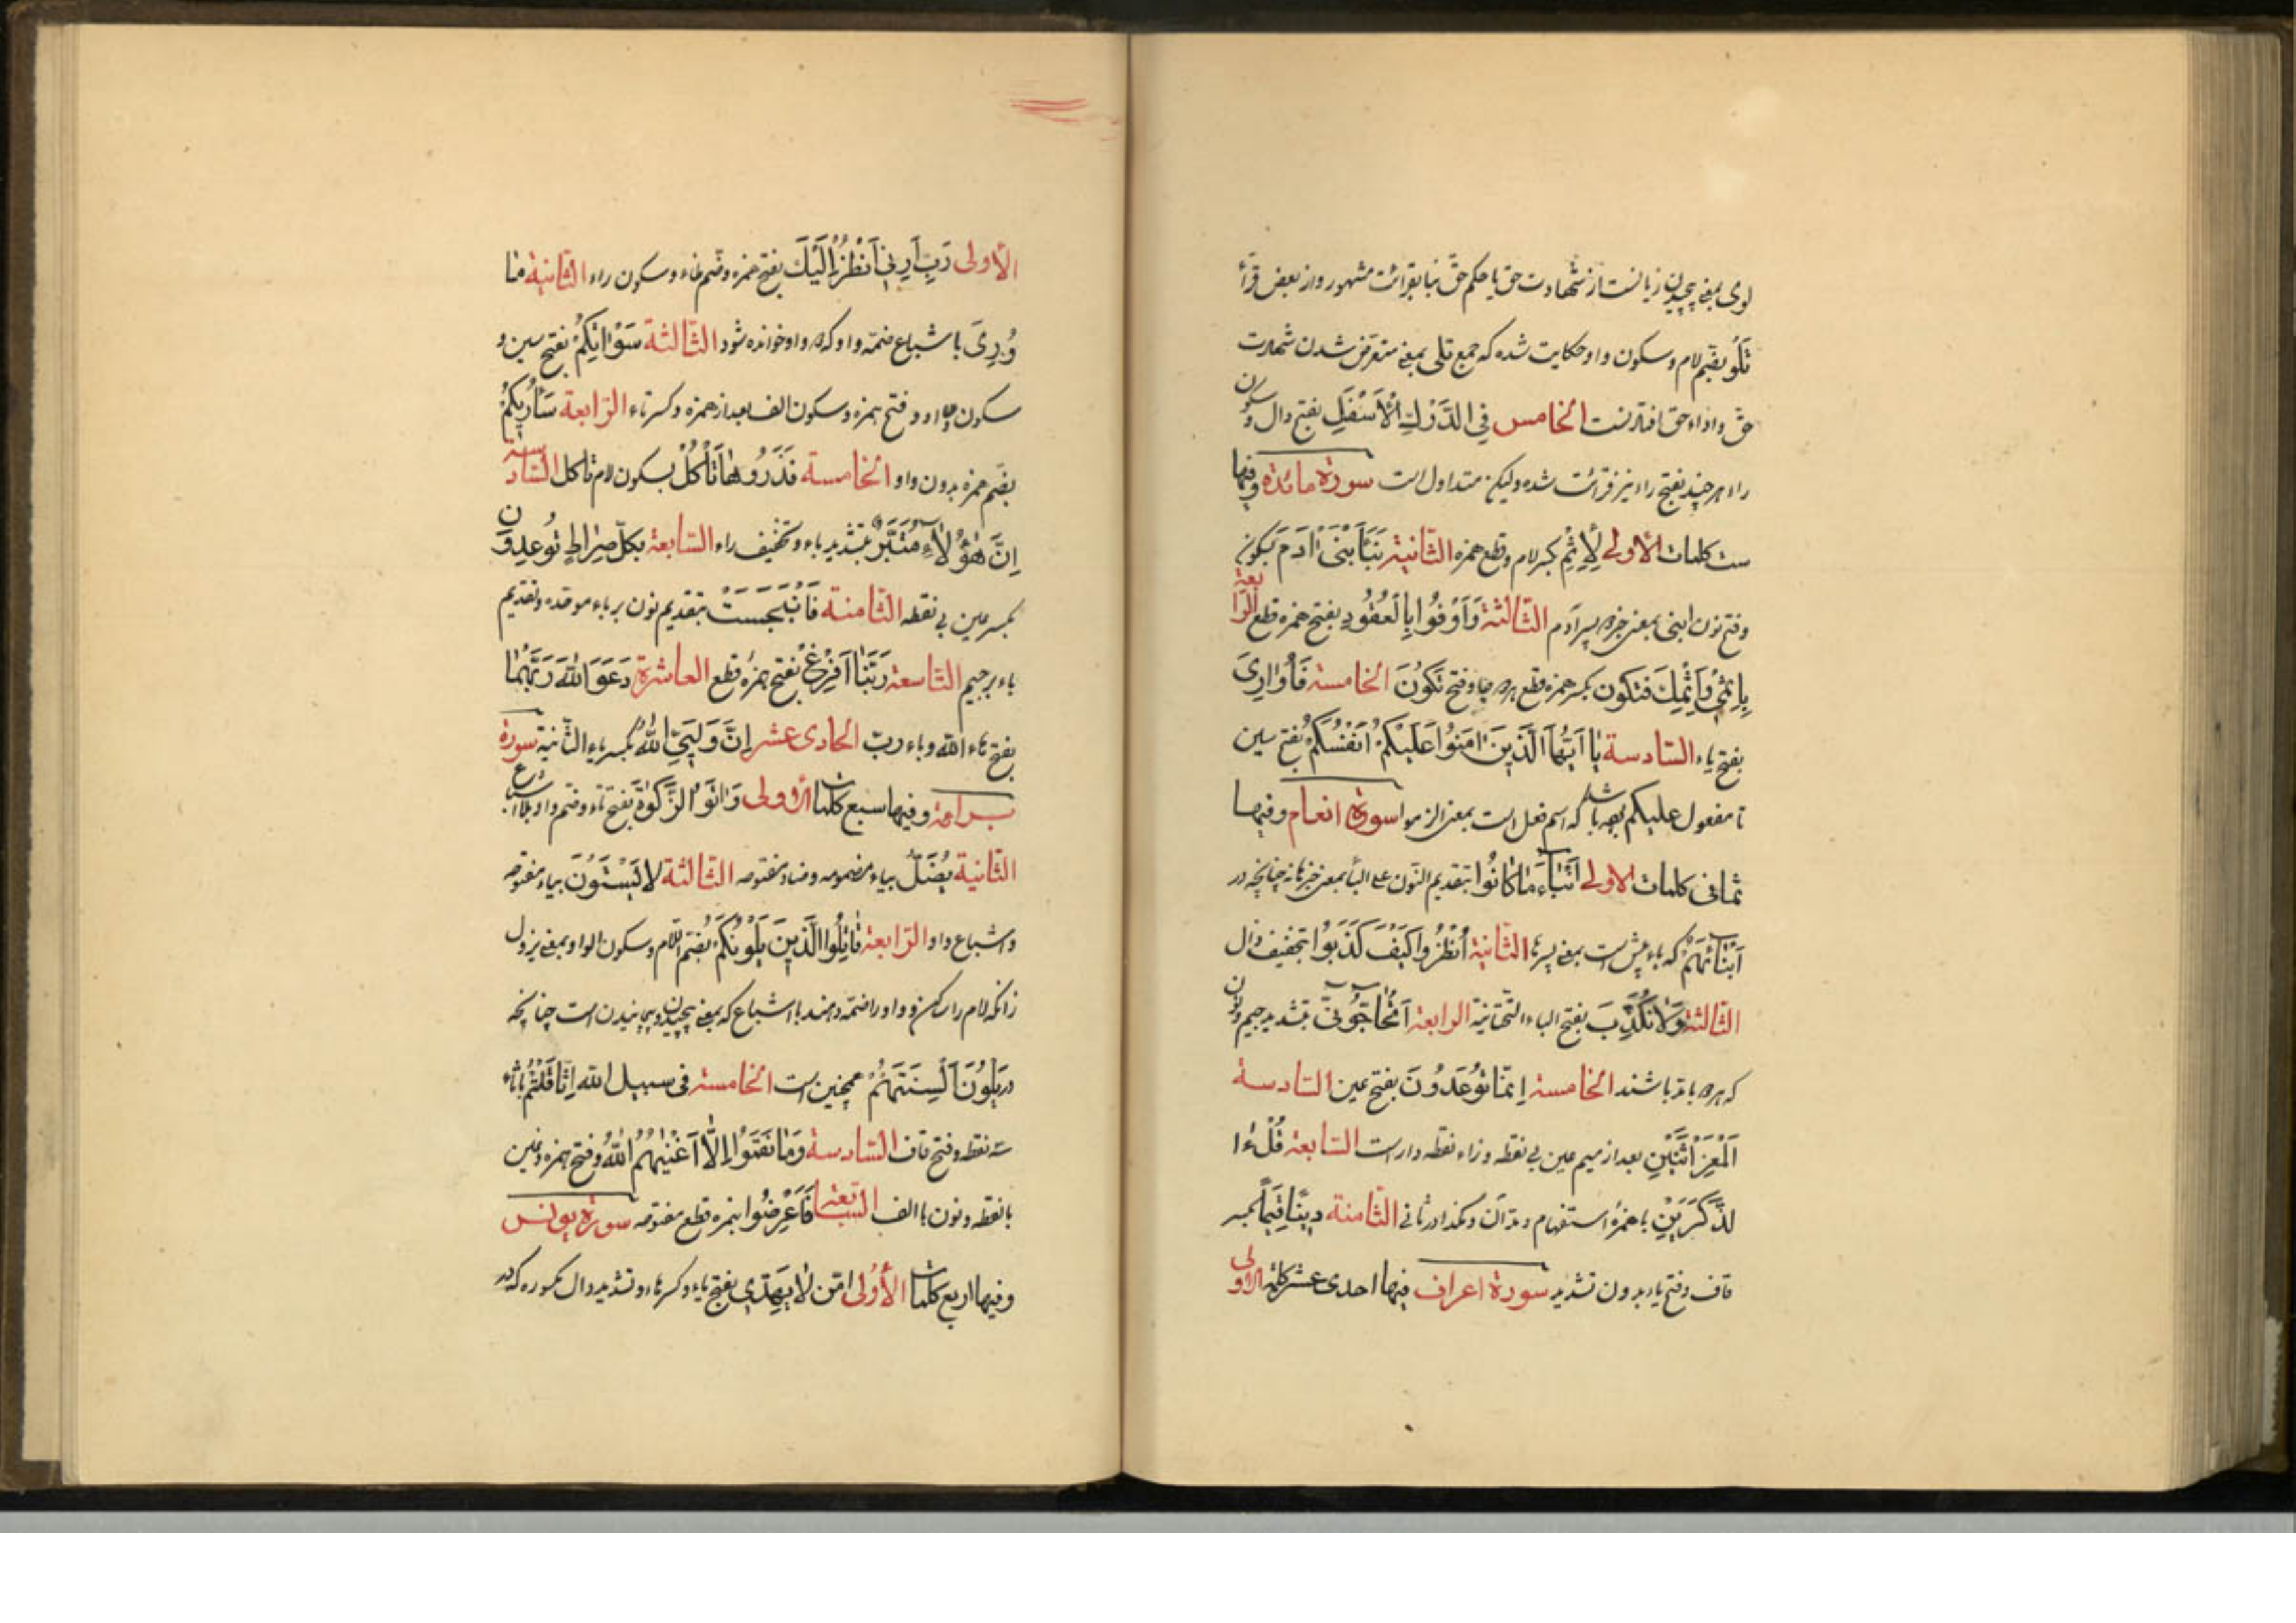 لوی بمعنی پیچیدن زبانست از شهادت حق یا حکم حق بنا بقرائت مشهور و از بعض قرّاء
تَلُو بضّم لام و سکون واو حکایت شده که جمع تلی بمعنی متعرض شدن شهادت
حق و اداء حق اقتادنست الخامس فِی الدَّرْكِ الْأَسْفَلِ بفتح دال و سکون
راء هر چند بفتح راء نیز قرائت شده ولیکن متداول است سورة مائدة و فیها
ست کلمات الاولی لِاِثْمٍ بکسر لام و قطع همزه الثّانیة نَبَأَ ابْنَیْ اٰدَمَ بسکون
و فتح نون ابنی بمعنی خبر دو پسر آدم الثّالثة وَ اَوْفُوا بِالْعُقُودِ بفتح همزه قطع الرّابعة
بِاِثْمِی وَ اِثْمِكَ فتکون بکسر همزه قطع هر دو جا و فتح تَكُونَ الخامسة فَاُوَارِیَ
بفتح یاء السّادسة یَا اَیُّهَا الَّذِینَ اٰمَنُوا عَلَیْكُمْ اَنْفُسَكُمْ بفتح سین
تا مفعول علیکم بوده باشد که اسم فعل است بمعنی الزموا سورة انعام و فیها
ثمانی کلمات الاولی اَنْبَاءُ مَا كَانُوا بتقدیم النّون علی الباء بمعنی خبرها نه چنانچه در
اَبْنَائَهُمْ که باء پیش است بمعنی پسرها الثّانیة اُنْظُرْ وا كَیْفَ كَذَبُوا بتخفیف ذال
الثّالثة وَ لَا نُكَذِّبَ بفتح الباء التّحتانیّة الرابعة اَتُحَاجُّونِّی بتشدید جیم و نون
که هر دو با مدّ باشند الخامسة اِنَّمَا تُوعَدُونَ بفتح عین السّادسة
اَلْمَعْزِ اثْنَیْنِ بعد از میم عین بی نقطه و زاء نقطه دار است السّابعة قُلْ ءٰا
لذَّكَرَیْنِ با همزهٔ استفهام و مدّ آن و هکذا در ثانی الثّامنة دِینًا قِیَمًا بکسر
قاف و فتح یاء بدون تشدید سورة اعراف فیها احدی عشر کلمة الاولی
الاولی رَبِّ اَرِنِی اَنْظُرْ اِلَیْكَ بفتح همزه و ضّم ظاء و سکون راء الثّانیة مٰا
وُرِیَ باشباع ضمّه واو که دو واو خوانده شود الثّالثة سَوْاٰتِكُمْ بفتح سین و
سکون واو و فتح همزه و سکون الف بعد از همزه و کسر تاء الرّابعة سَاُرِیكُمْ
بضّم همزه بدون واو الخامسة فَذَرُوهَا تَاْكُلْ بسکون لام تاکل السّادسة
اِنَّ هٰؤُلَاءِ مُتَبَّرٌ بتشدید باء و تخفیف راء السّابعة بِكُلِّ صِرَاطٍ تُوعِدُونَ
بکسر عین بی نقطه الثّامنة فَانْبَجَسَتْ بتقدیم نون بر باء موحّده و تقدیم
باء بر جیم التّاسعة رَبَّنَا اَفْرِغْ بفتح همزهٔ قطع العاشرة دَعَوَا اللّٰهَ رَبَّهُمَا
بفتح هاء اللّه و باء ربّ الحادی عشر اِنَّ وَلِیِّیَ اللّٰهُ بکسر یاء الثّانیة سورة
براءة و فیها سبع کلمات الاولی وَ اٰتَوُا الزَّكٰوةَ بفتح تاء و ضّم واو بلا اشباع
الثّانیة یُضَلُّ بیاء مضمومه و ضاد مفتوحه الثّالثة لَا یَسْتَوُونَ بیاء مفتوحه
و اشباع واو الرّابعة قَاتِلُوا الَّذِینَ یَلُونَكُمْ بضّم اللّام و سکون الواو بمعنی نزول
زانکه لام را ساکن و واو را ضمّه دهند با اشباع که بمعنی پیچیدن و پیچانیدن است چنانچه
در یَلْوُنَ اَلْسِنَتَهُمْ همچنین است الخامسة فی سبیل اللّه اِثَّاقَلْتُمْ با ثاء
سه نقطه و فتح قاف السّادسة وَ مَا نَقَمُوا اِلَّا اَنْ اَغْنٰیهُمُ اللّٰهُ و فتح همزه و غین
با نقطه و نون با الف السّابعة فَاَعْرِضُوا بهمزه قطع مفتوحه سورة یونس
و فیها اربع کلمات الاولی اَمَّنْ لَا یَهِدِّی بفتح یاء و کسر هاء و تشدید دال مکسوره که در